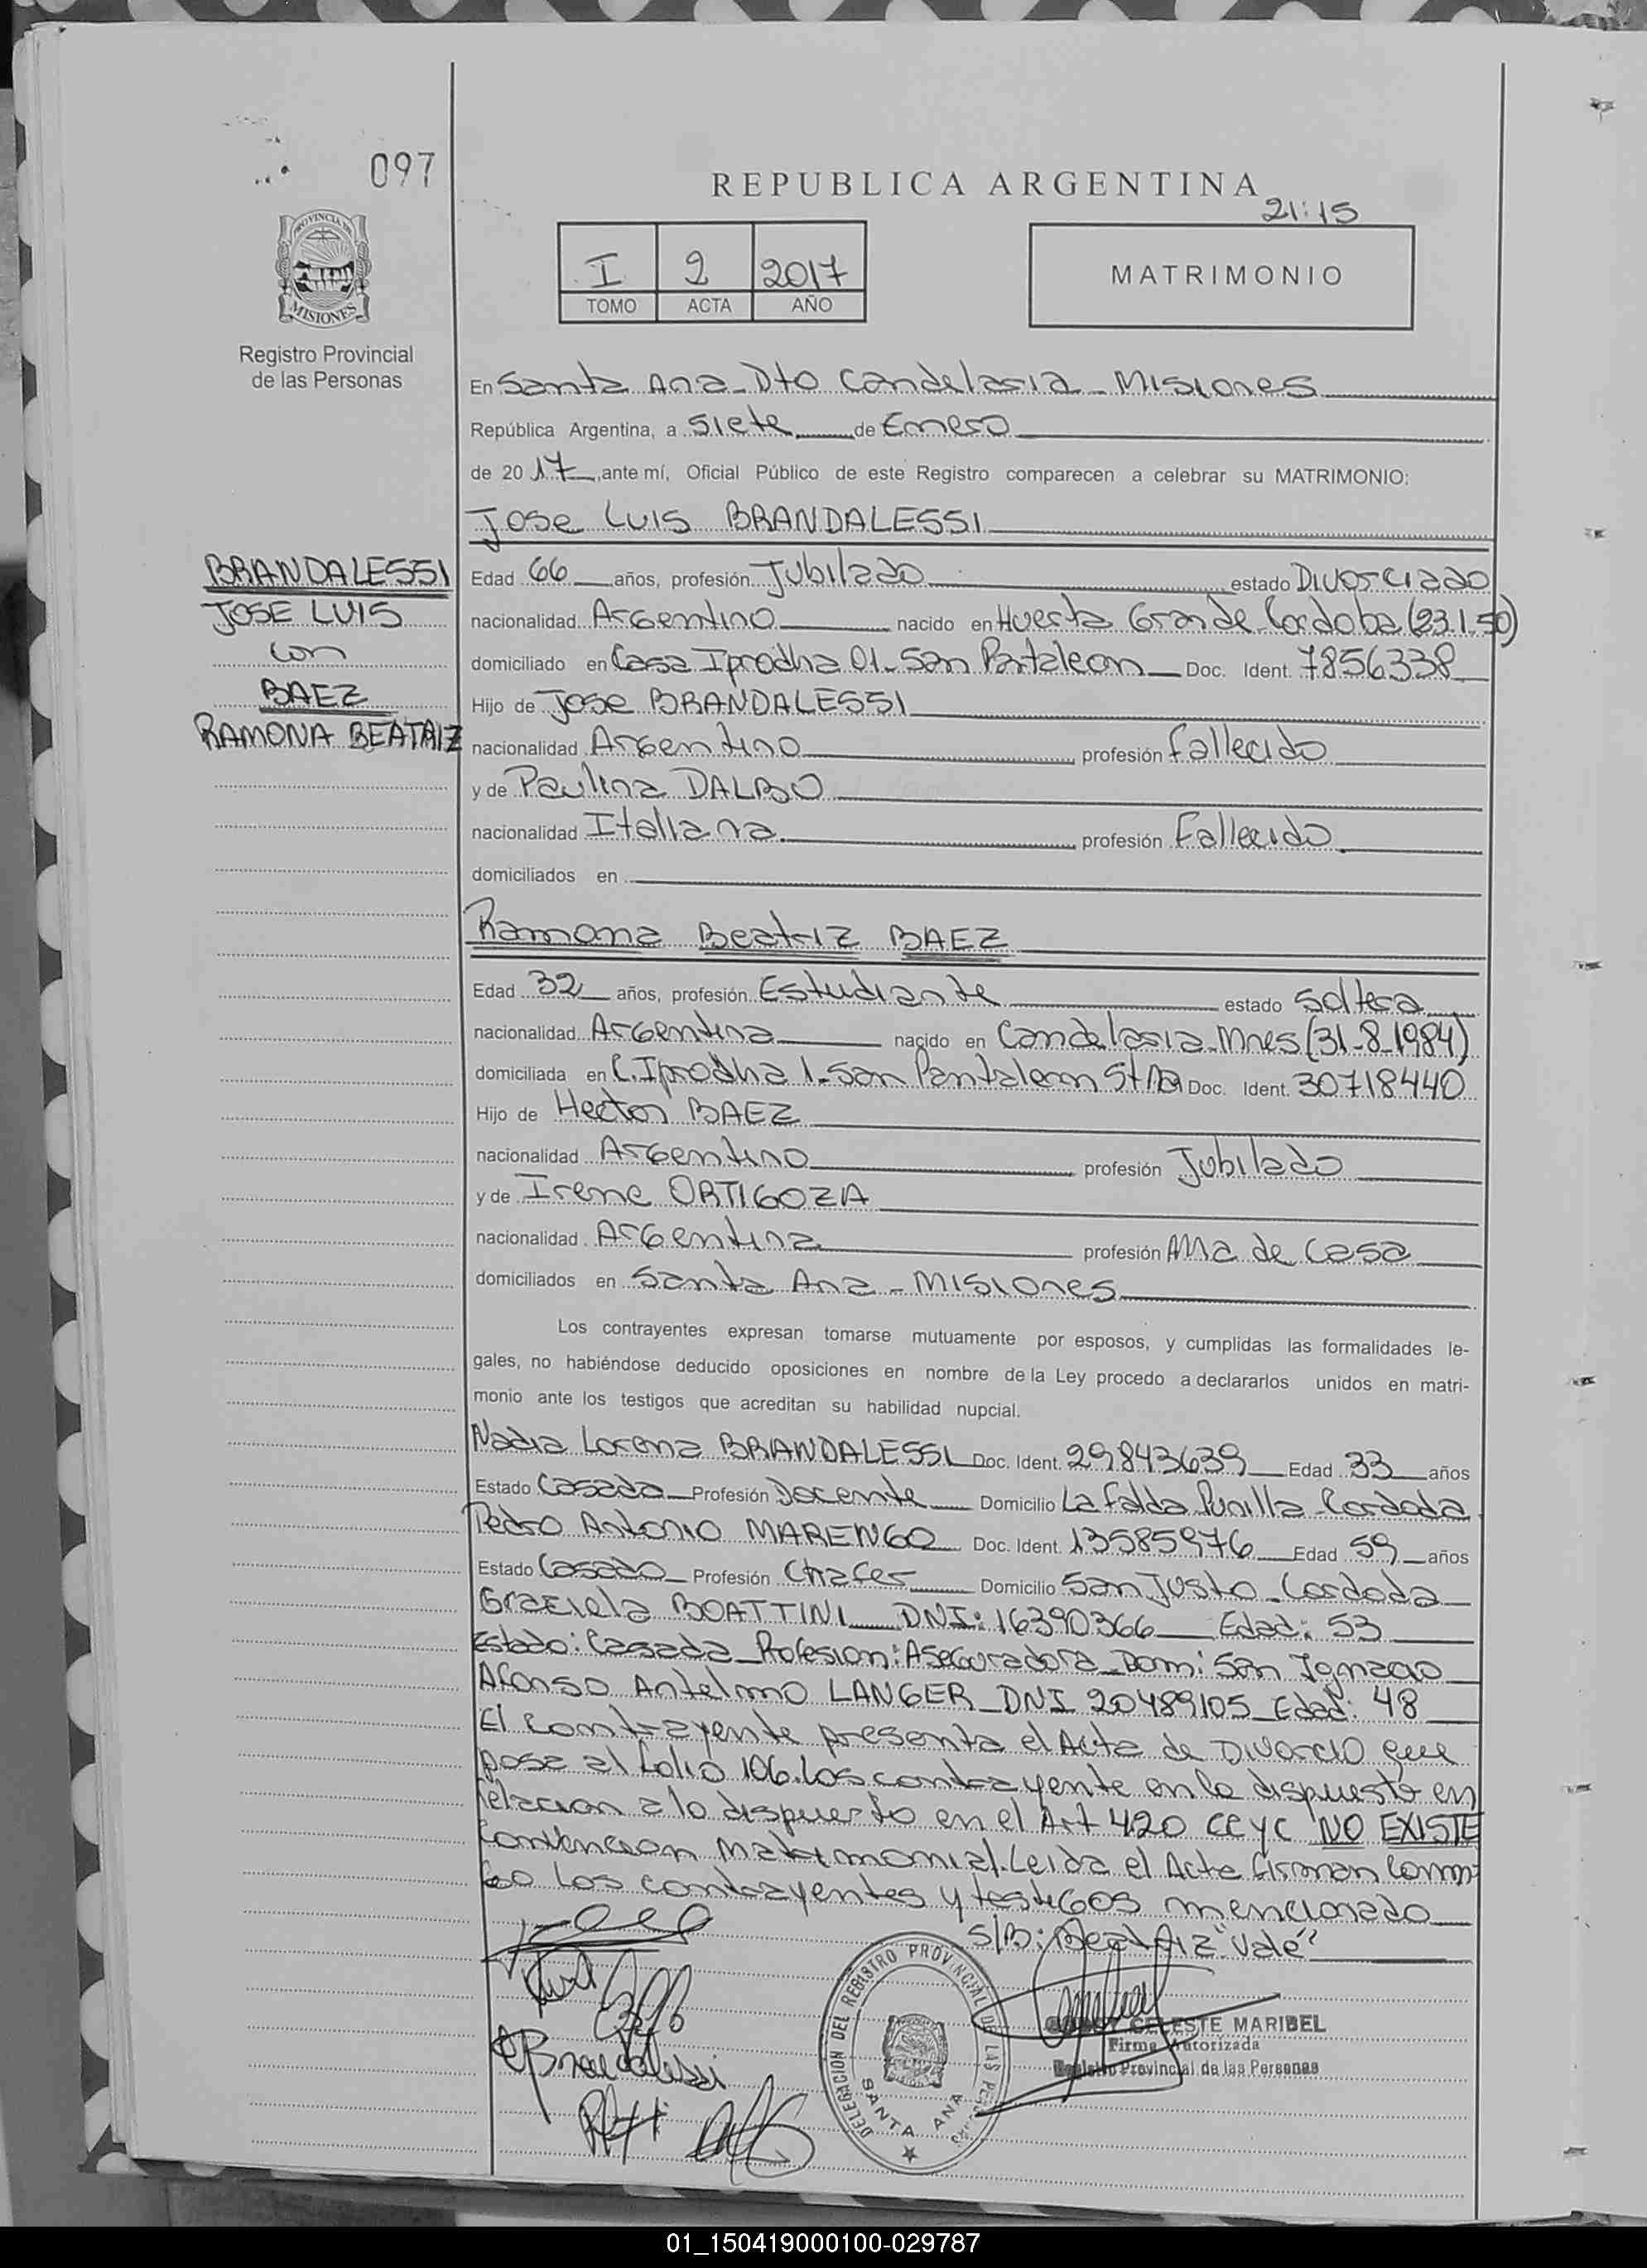 097
REPUBLICA ARGENTINA
21:15
I 2 2017
TOMO ACTA AÑO
MATRIMONIO
PROVINCIA DE
MISIONES
Registro Provincial
de las Personas
En Santa Ana - Dto Candelaria - Misiones
República Argentina, a Siete de Enero
de 2017, ante mí, Oficial Público de este Registro comparecen a celebrar su MATRIMONIO:
Jose Luis BRANDALESSI
BRANDALESSI
JOSE LUIS
con
BAEZ
RAMONA BEATRIZ
Edad 66 años, profesión Jubilado estado Divorciado
nacionalidad Argentino nacido en Huerta Grande - Cordoba (23.1.50)
domiciliado en Casa Iprodha 01 - San Pantaleon Doc. Ident. 7856338
Hijo de Jose BRANDALESSI
nacionalidad Argentino profesión Fallecido
y de Paulina DALBO
nacionalidad Italiana profesión Fallecido
domiciliados en
Ramona Beatriz BAEZ
Edad 32 años, profesión Estudiante estado Soltera
nacionalidad Argentina nacido en Candelaria - Mnes (31-8-1984)
domiciliada en C. Iprodha 1 - San Pantaleon Doc. Ident. 30718440
Hijo de Hector BAEZ
nacionalidad Argentino profesión Jubilado
y de Irene ORTIGOZA
nacionalidad Argentina profesión Ama de Casa
domiciliados en Santa Ana - Misiones
Los contrayentes expresan tomarse mutuamente por esposos, y cumplidas las formalidades le-
gales, no habiéndose deducido oposiciones en nombre de la Ley procedo a declararlos unidos en matri-
monio ante los testigos que acreditan su habilidad nupcial.
Nadia Lorena BRANDALESSI Doc. Ident. 29843639 Edad 33 años
Estado Casada Profesión Docente Domicilio La Falda Punilla - Cordoda
Pedro Antonio MARENGO Doc. Ident. 13585976 Edad 59 años
Estado Casado Profesión Chafer Domicilio San Justo - Cordoda
Graziela BOATTINI DNI: 16390366 Edad: 53
Estado: Casada - Profesion: Aseguradora - Dom: San Ignacio
Afonso Antelmo LANGER - DNI 20489105 - Edad: 48
El contrayente presenta el Acta de Divorcio que
posa al folio 106. Los contrayente en lo dispuesto en
relacion a lo dispuesto en el Art 420 CCyC NO EXISTE
Convencion Matrimonial. Leida el Acta firman conmi
go los contrayentes y testigos mencionado
S/B: Beatriz "Vale"
Brandalessi
DELEGACION DEL REGISTRO PROVINCIAL DE LAS PERSONAS
SANTA ANA
CELESTE MARIBEL
Firma Autorizada
Registro Provincial de las Personas
01_150419000100-029787